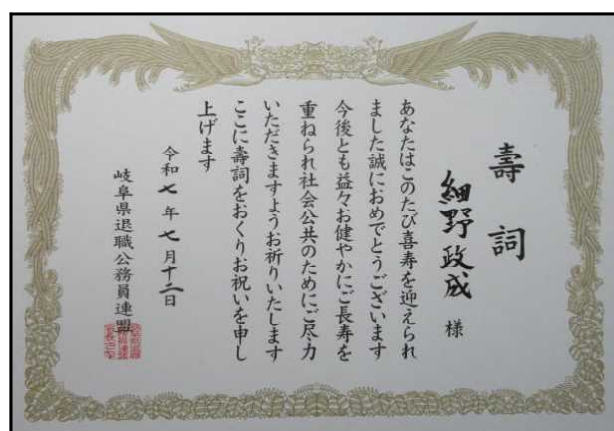 壽詞
細野政成 様
あなたはこのたび喜寿を迎えられ
ました誠におめでとうございます
今後とも益々お健やかにご長寿を
重ねられ社会公共のためにご尽力
いただきますようお祈りいたします
ここに壽詞をおくりお祝いを申し
上げます
令和七年七月十二日
岐阜県退職公務員連盟